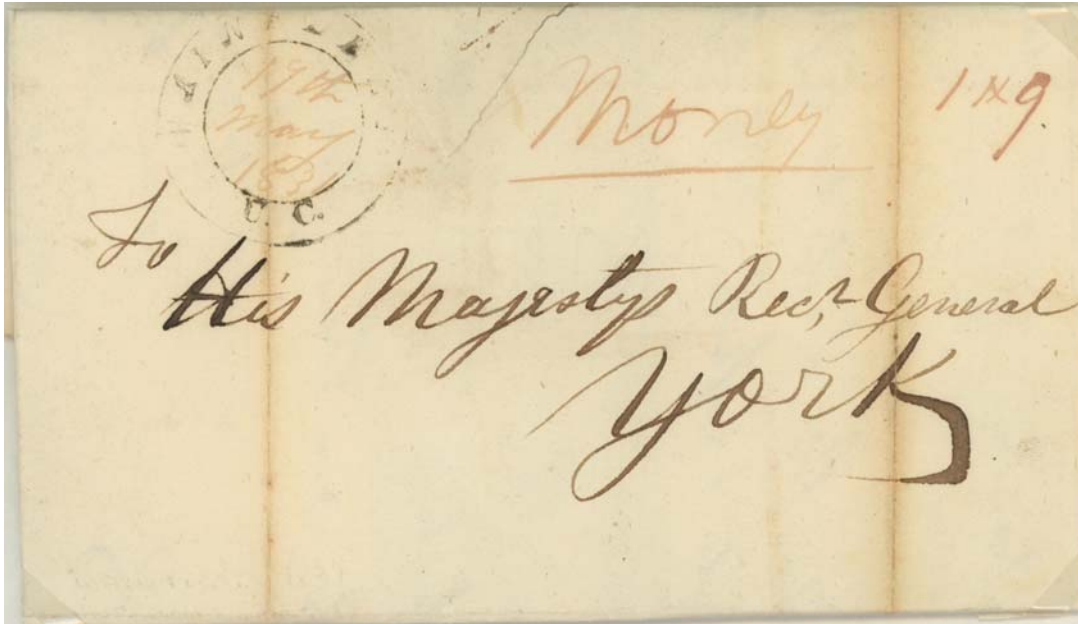 19th
May
U. C.
Money
1 N 9
To
His Majestys Recr. General
York